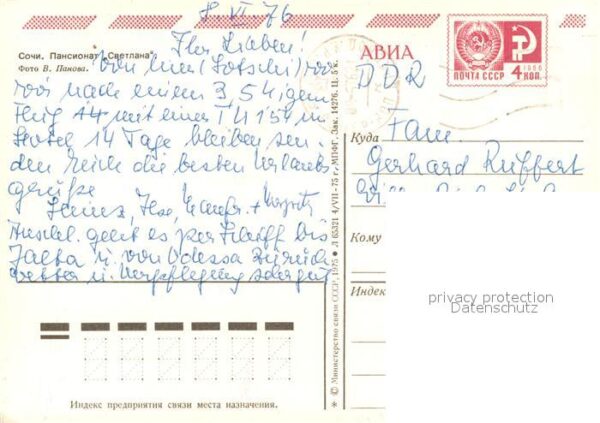 8 VI 76
Ihr Lieben!
Сочи. Пансионат "Светлана".
Фото В. Панова.
Von hier (Sotschi) wo
wir nach einem 3 Stigem
Flug mit einer TU 154 im
Hotel 14 Tage bleiben sen-
den Euch die besten Urlaubs
grüße
Heinz, Ilse, + 
Anschl. geht es per Schiff bis
Jalta u. von Odessa zurück
Wetter u. Verpflegung sehr gut
АВИА
ПОЧТА СССР 4 КОП.
1966
DDR
Куда Fam.
Gerhard Ruffert
Кому
Индекс
privacy protection
Datenschutz
* © Министерство связи СССР, 1975 * Л 65321 4/VII-75 г. МПФГ. Зак. 14276. Ц. 5 к.
Индекс предприятия связи места назначения.